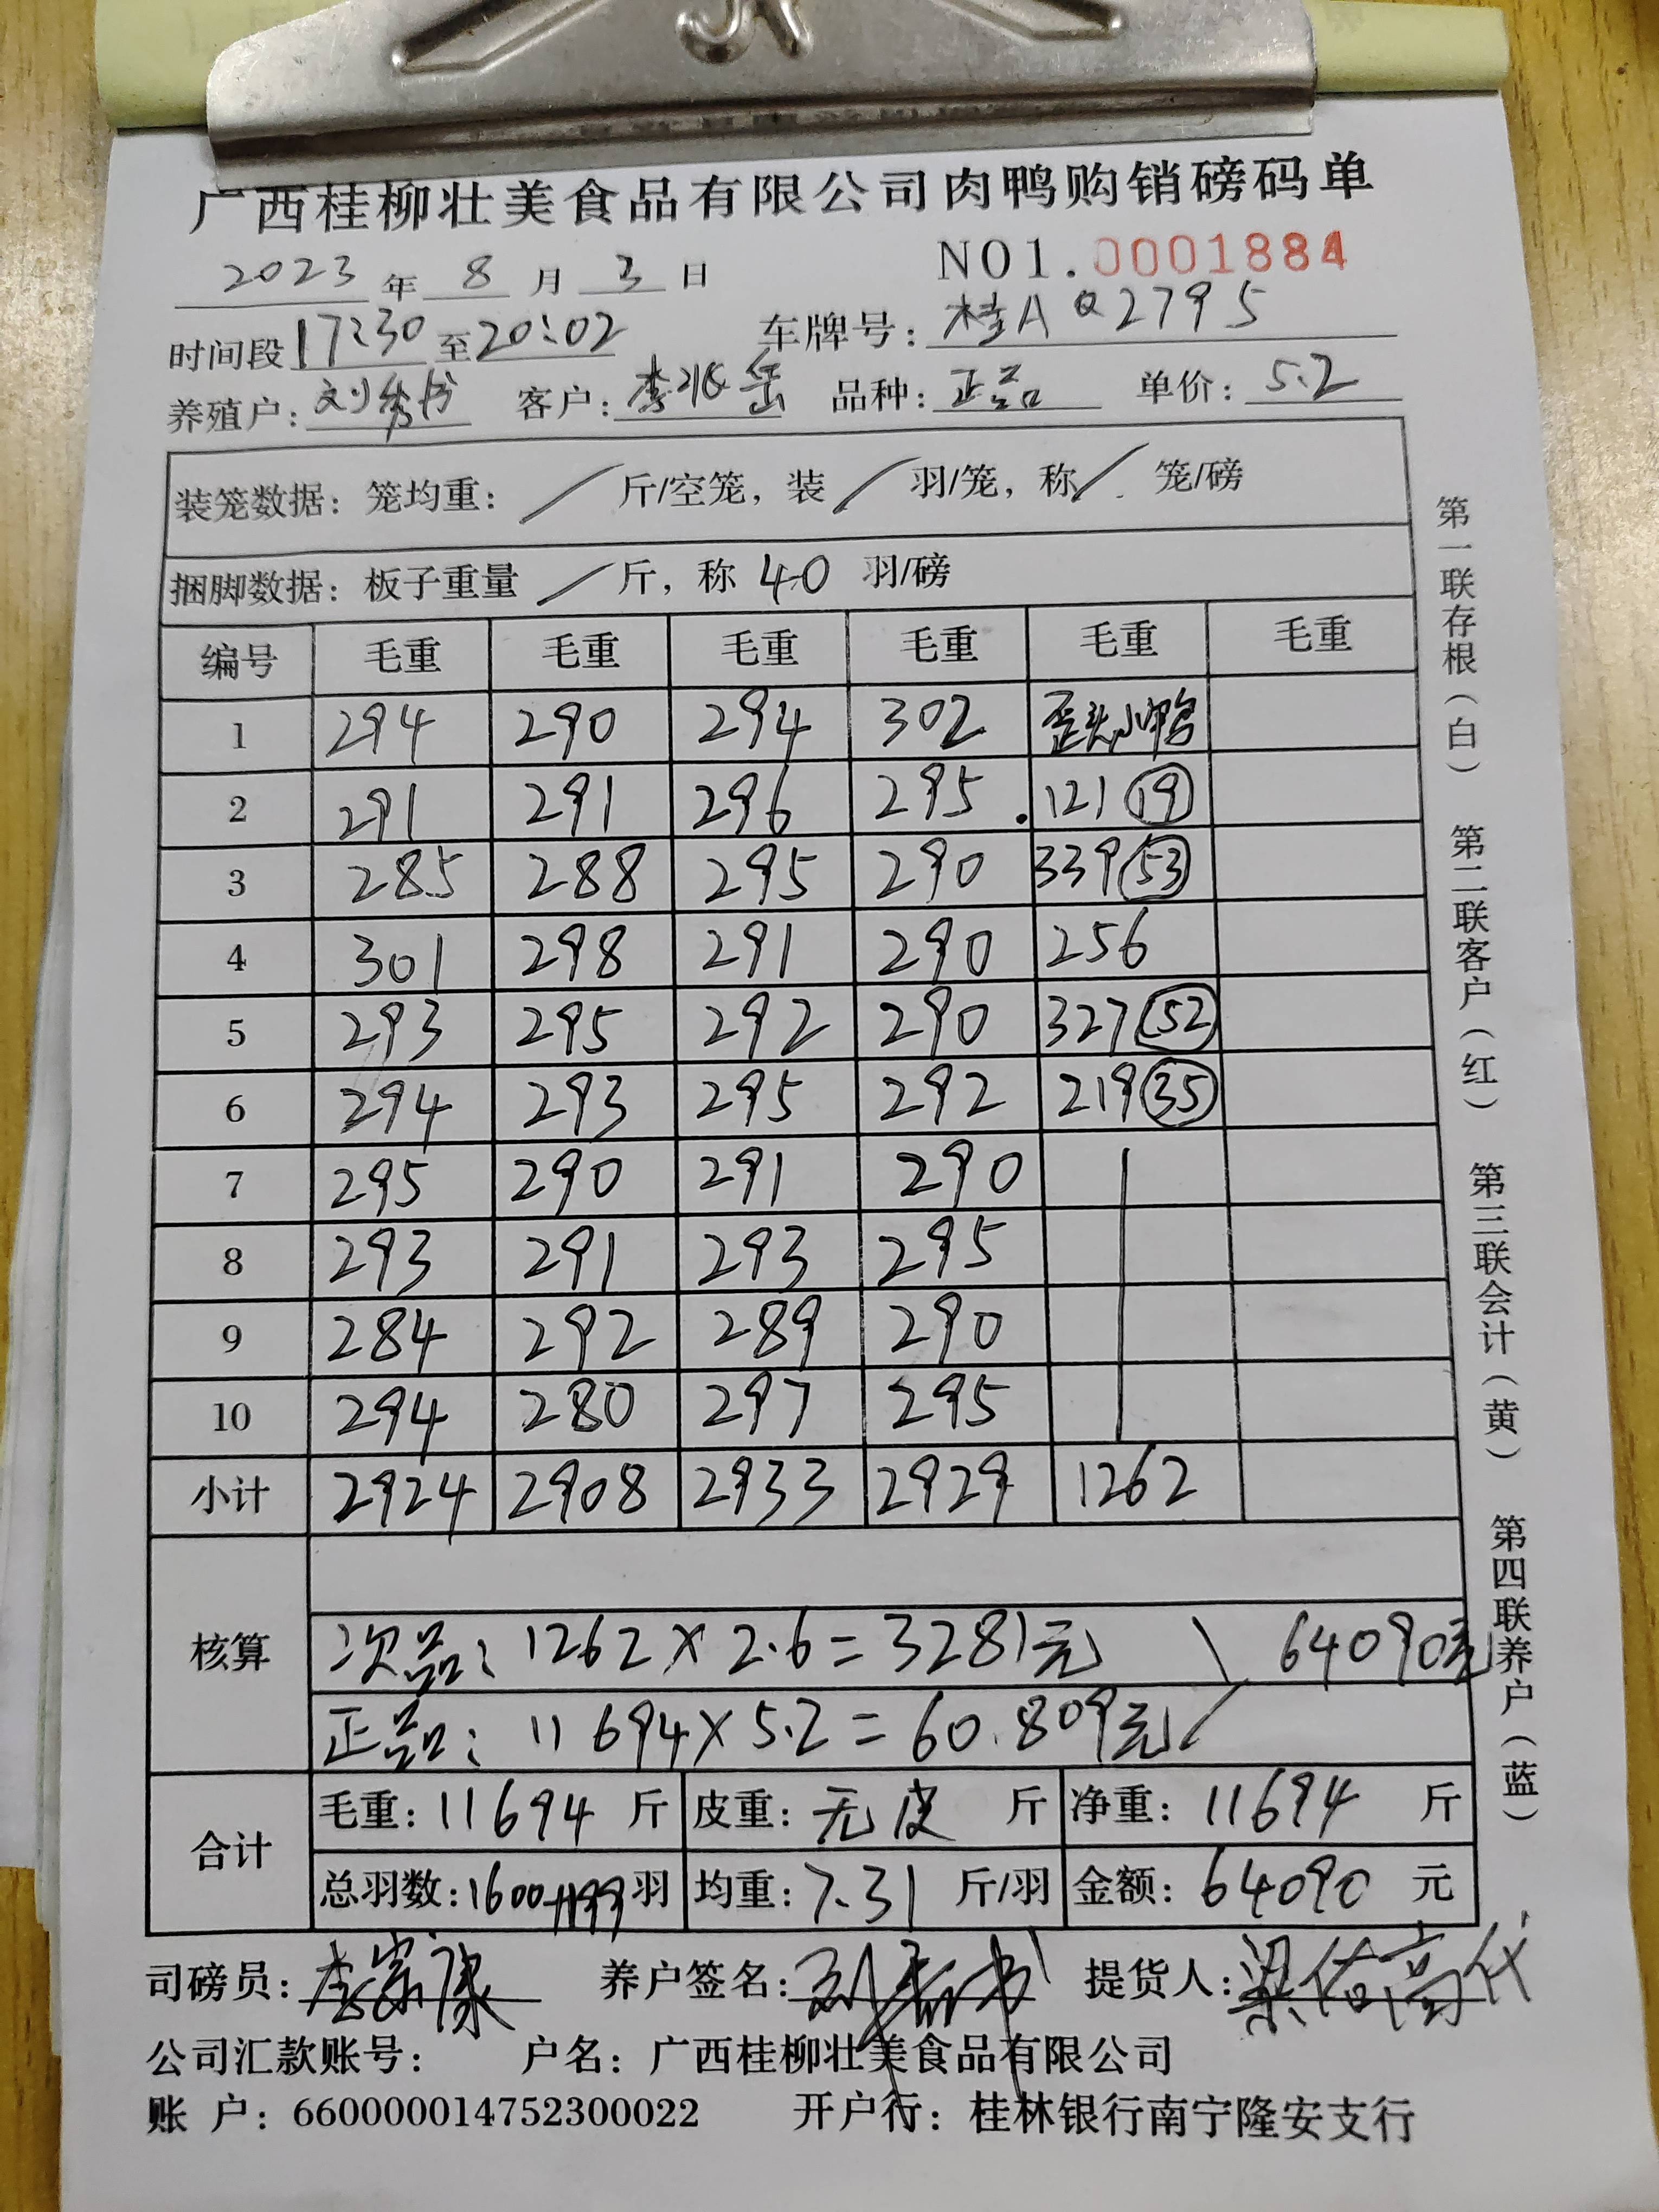 广西桂柳壮美食品有限公司肉鸭购销磅码单
2023年 8 月 3 日 NO1.0001884
时间段17:30至20:02 车牌号:桂AQ2795
养殖户:刘秀书 客户:李兆岳 品种:正品 单价:5.2
装笼数据:笼均重: / 斤/空笼,装 / 羽/笼,称 / 笼/磅
捆脚数据:板子重量 / 斤,称 40 羽/磅
编号 毛重 毛重 毛重 毛重 毛重 毛重
1 294 290 294 302 歪头小鸭
2 291 291 296 295 .121 19
3 285 288 295 290 339 53
4 301 298 291 290 256
5 293 295 292 290 327 52
6 294 293 295 292 219 35
7 295 290 291 290
8 293 291 293 295
9 284 292 289 290
10 294 280 297 295
小计 2924 2908 2933 2929 1262
核算
次品:1262×2.6=3281元 \ 64090元
正品:11694×5.2=60.809元/
合计
毛重:11694 斤 皮重:无皮 斤 净重:11694 斤
总羽数:1600+199羽 均重:7.31 斤/羽 金额:64090 元
司磅员: 养户签名: 提货人:
公司汇款账号: 户名:广西桂柳壮美食品有限公司
账 户:660000014752300022 开户行:桂林银行南宁隆安支行
第一联存根(白) 第二联客户(红) 第三联会计(黄) 第四联养户(蓝)